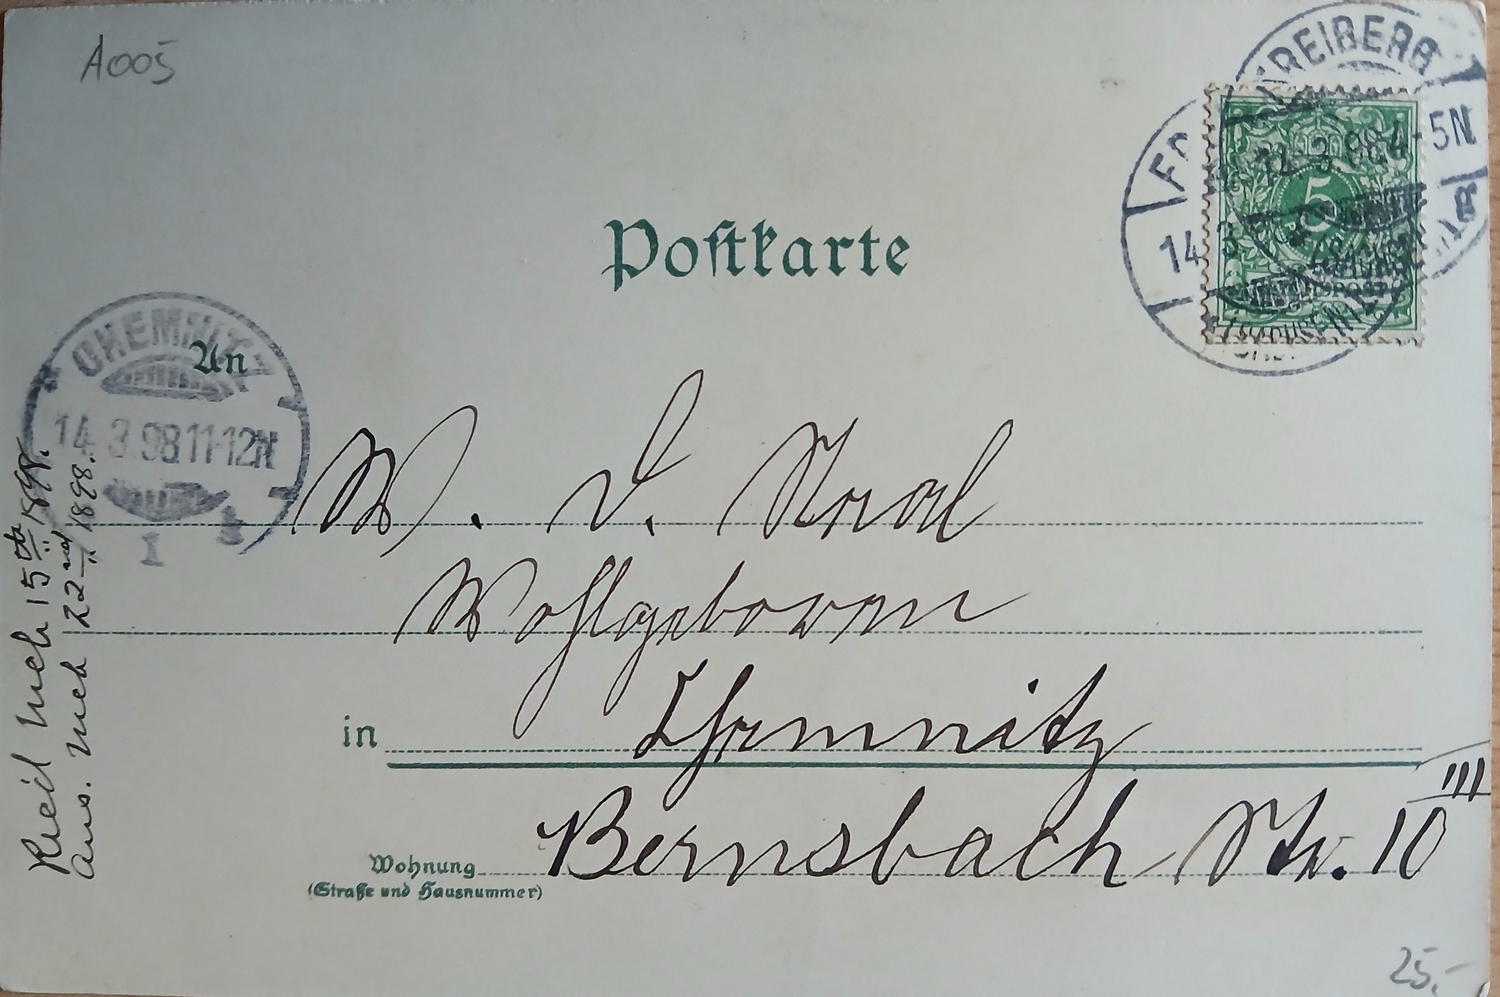 A005
FREIBERG
14.3.98 4-5N
5
(SACHSEN)
Postkarte
CHEMNITZ
14.3.98 11-12N
1
An
W.
Wohlgeboren
in Chemnitz
Bernsbach Str. 10 III
Wohnung
(Straße und Hausnummer)
Rec'd Mch 15th 1898.
Ans. Mch 22nd 1898.
25.-